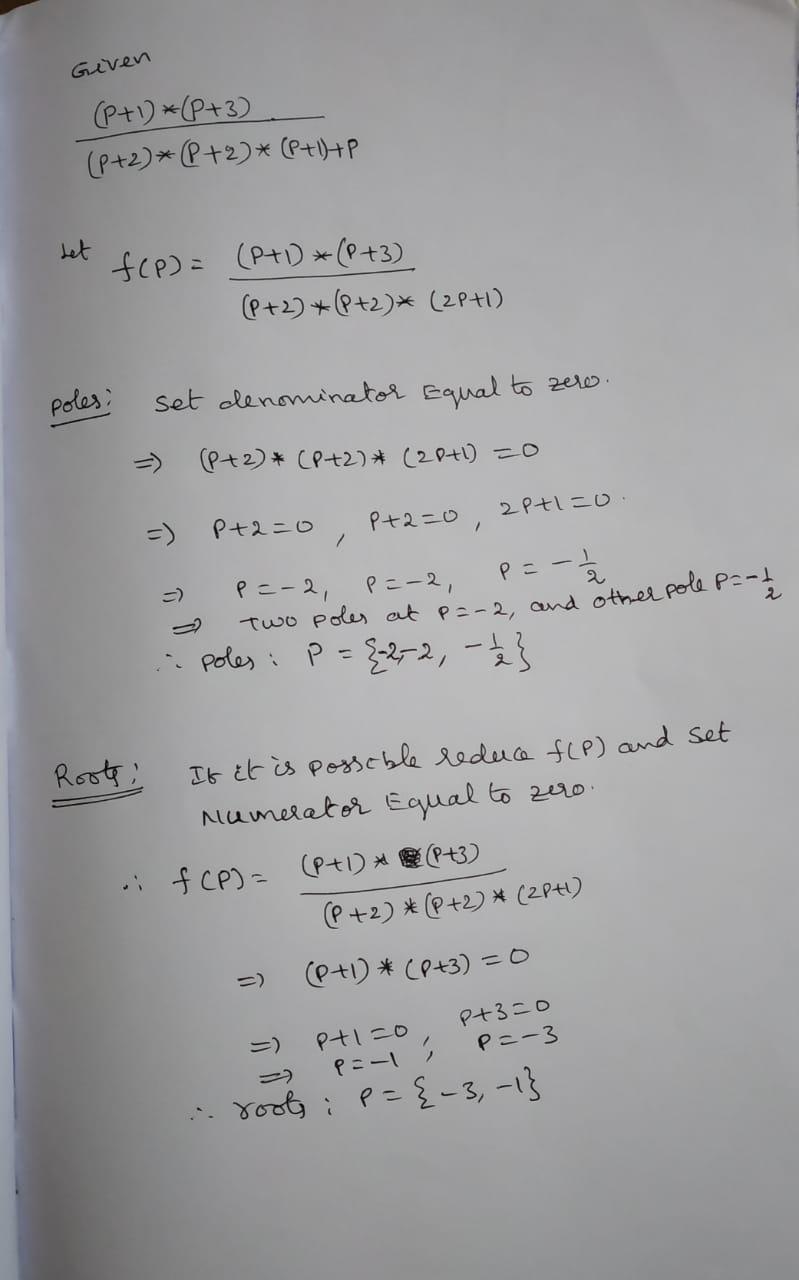 Given
(P+1)*(P+3)
(P+2)*(P+2)*(P+1)+P
Let f(P) = (P+1)*(P+3)
(P+2)*(P+2)*(2P+1)
Poles: Set denominator Equal to zero.
=> (P+2)*(P+2)*(2P+1) = 0
=> P+2=0, P+2=0, 2P+1=0.
=> P=-2, P=-2, P=-1/2
=> Two poles at P=-2, and other pole P=-1/2
∴ Poles: P = {-2,-2, -1/2}
Roots: If it is possible reduce f(P) and Set
Numerator Equal to zero.
∴ f(P) = (P+1)*(P+3)
(P+2)*(P+2)*(2P+1)
=> (P+1)*(P+3) = 0
=> P+1=0, P+3=0
=> P=-1, P=-3
∴ roots: P = {-3, -1}